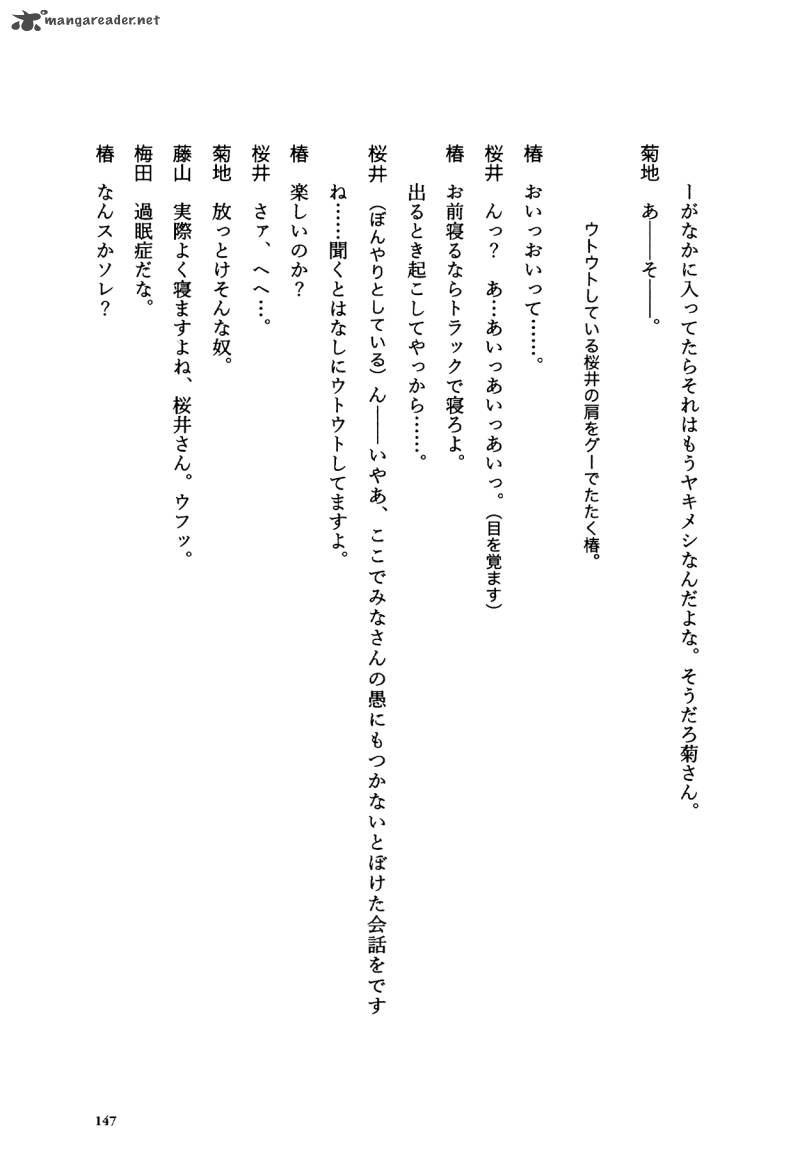 mangareader.net
ーがなかに入ってたらそれはもうヤキメシなんだよな。そうだろ菊さん。
菊地　あ――そ――。
ウトウトしている桜井の肩をグーでたたく椿。
椿　おいっおいって……。
桜井　んっ？　あ…あいっあいっあいっ。（目を覚ます）
椿　お前寝るならトラックで寝ろよ。
出るとき起こしてやっから……。
桜井　（ぼんやりとしている）ん――いやあ、ここでみなさんの愚にもつかないとぼけた会話をです
ね……聞くとはなしにウトウトしてますよ。
椿　楽しいのか？
桜井　さァ、へへ…。
菊地　放っとけそんな奴。
藤山　実際よく寝ますよね、桜井さん。ウフッ。
梅田　過眠症だな。
椿　なんスかソレ？
147